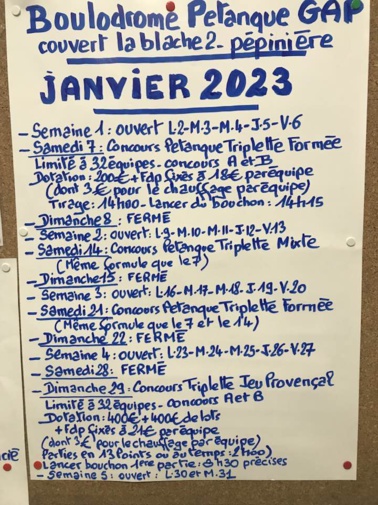 Boulodrome Petanque GAP
couvert la blache 2 - pépinière
JANVIER 2023
- Semaine 1 : ouvert L.2-M.3-M.4-J.5-V.6
- Samedi 7 : Concours Petanque Triplette Formée
Limité à 32 équipes - concours A et B
Dotation : 200€ + Fdp fixés à 18€ par équipe
(dont 3€ pour le chauffage par équipe)
Tirage : 14h00 - Lancer du bouchon : 14h15
- Dimanche 8 : FERMÉ
- Semaine 2 : ouvert : L.9-M.10-M.11-J.12-V.13
- Samedi 14 : Concours Petanque Triplette Mixte
(Même formule que le 7)
- Dimanche 15 : FERMÉ
- Semaine 3 : ouvert : L.16-M.17-M.18-J.19-V.20
- Samedi 21 : Concours Petanque Triplette Formée
(Même formule que le 7 et le 14)
- Dimanche 22 : FERMÉ
- Semaine 4 : ouvert : L.23-M.24-M.25-J.26-V.27
- Samedi 28 : FERMÉ
- Dimanche 29 : Concours Triplette Jeu Provençal
Limité à 32 équipes - concours A et B
Dotation : 400€ + 400€ de lots
+ Fdp fixés à 21€ par équipe
(dont 3€ pour le chauffage par équipe)
Parties en 13 Points ou au temps : 2h00)
- Lancer bouchon 1ere partie : 8h30 précises
- Semaine 5 : ouvert : L.30 et M.31